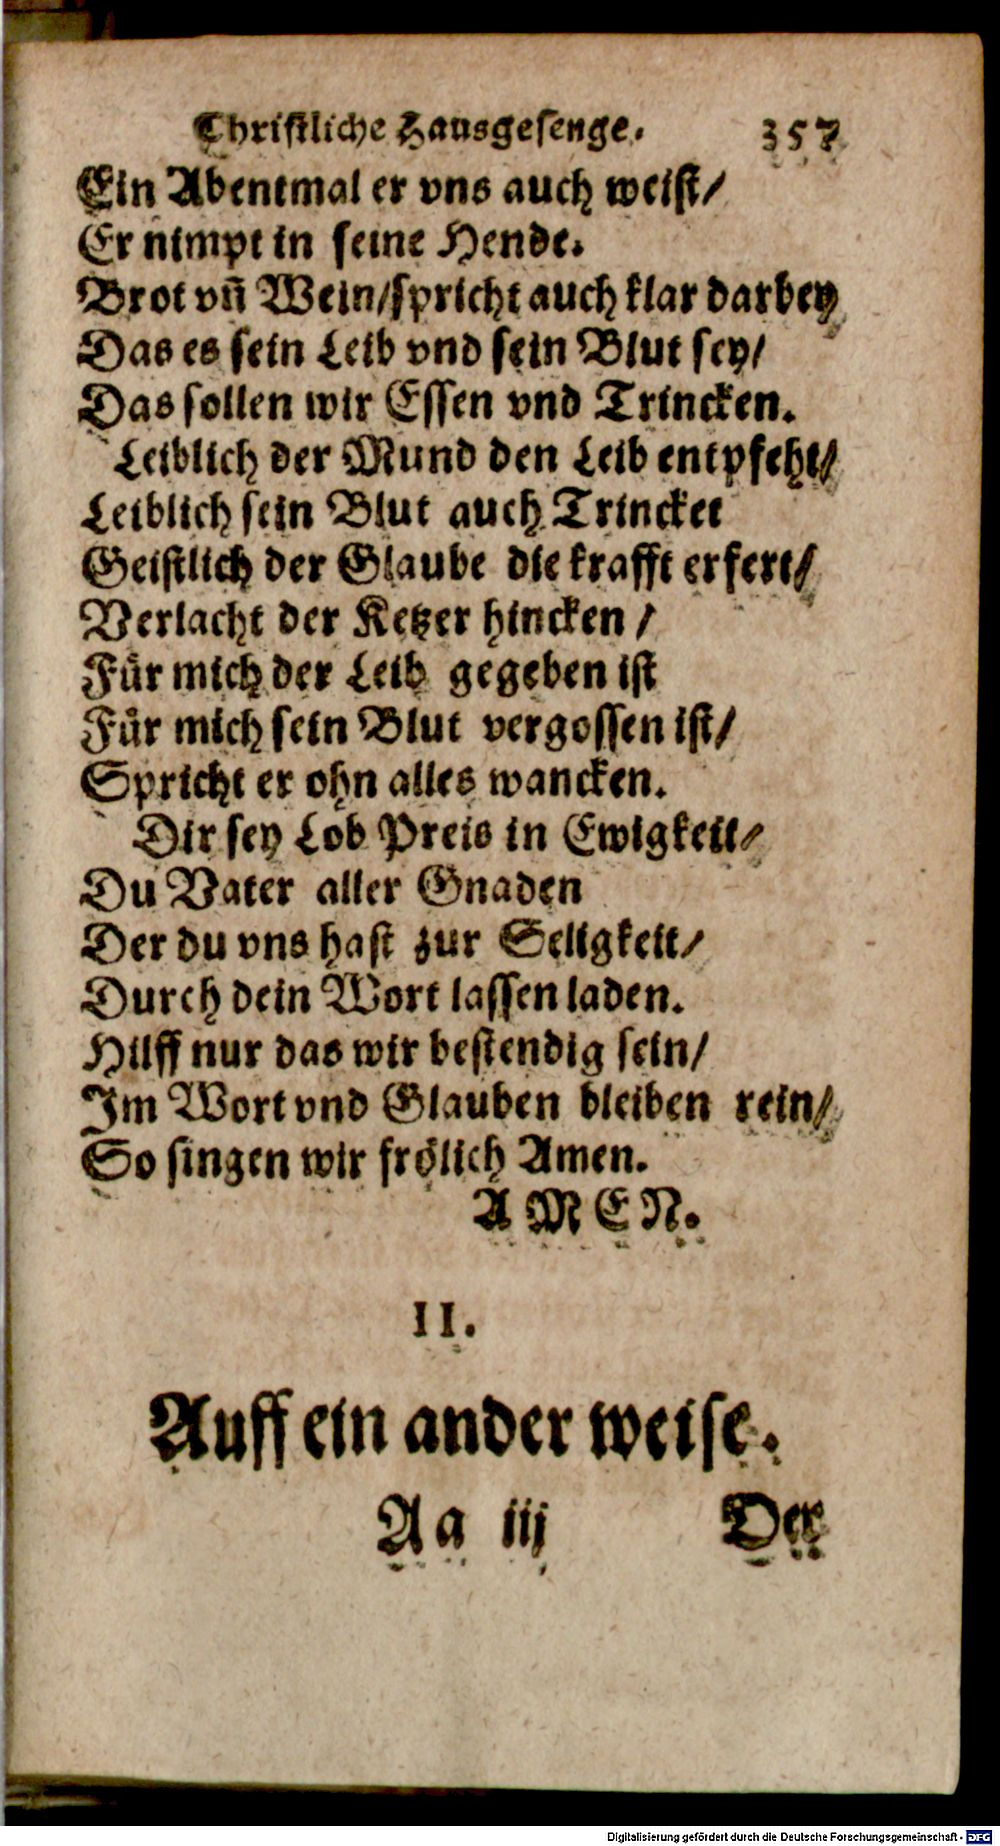 Christliche Hausgesenge. 357
Ein Abentmal er vns auch weist/
Er nimpt in seine Hende.
Brot vñ Wein/spricht auch klar darbey
Das es sein Leib vnd sein Blut sey/
Das sollen wir Essen vnd Trincken.
Leiblich der Mund den Leib entpfeht/
Leiblich sein Blut auch Trincket
Geistlich der Glaube die krafft erfert/
Verlacht der Ketzer hincken /
Für mich der Leib gegeben ist
Für mich sein Blut vergossen ist/
Spricht er ohn alles wancken.
Dir sey Lob Preis in Ewigkeit/
Du Vater aller Gnaden
Der du vns hast zur Seligkeit/
Durch dein Wort lassen laden.
Hilff nur das wir bestendig sein/
Im Wort vnd Glauben bleiben rein/
So singen wir frölich Amen.
A M E N.
II.
Auff ein ander weise.
Aa iij Der
Digitalisierung gefördert durch die Deutsche Forschungsgemeinschaft - DFG